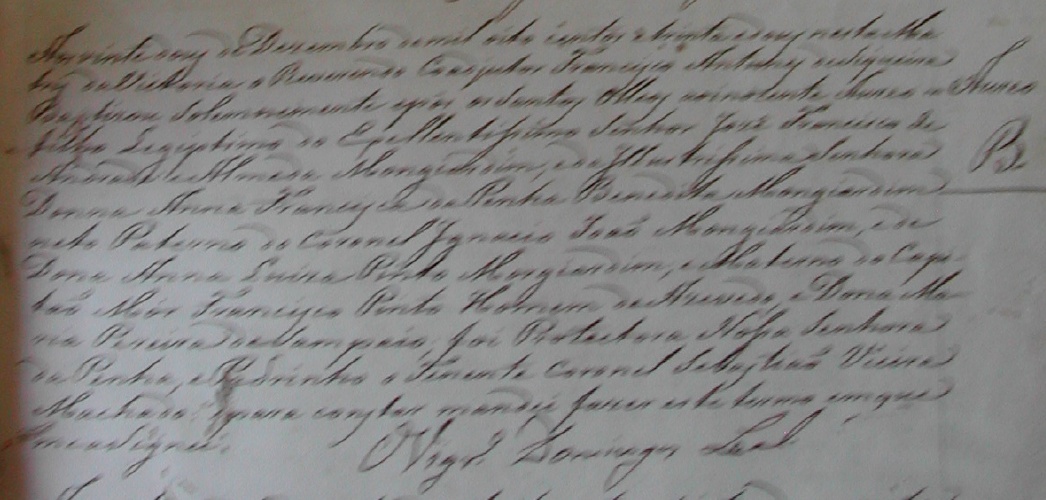 Aos vinte dous de Dezembro de mil oito centos e trinta e dous nesta Ma
triz da Victoria o Reverendo Coadjutor Francisco Antunes de Siqueira
Baptizou Solemnemente e pôs os Santos Oleos ao inocente Aureo
Aureo
filho Legiptimo do Excellentissimo Senhor José Francisco de
Andrade e Almada Mongiardim, e da Illustrissima Senhora
Pg
Donna Anna Francisca da Penha Benedita Mongiardim
neto Paterno do Coronel Ignacio João Mongiardim, e de
Dona Anna Luiza Pinto Mongiardim, e Materno do Capi
tão Mór Francisco Pinto Homem de Azevedo, e Dona Ma
ria Pereira de Sampaio, foi Protectora Nossa Senhora
da Penha, e Padrinho o Tenente Coronel Sebastião Vieira
Machado. E para constar mandei fazer este termo em que
me assignei.
Vigr.º Domingos Leal